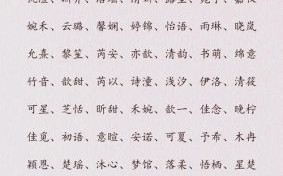 婉禾、云璐、馨娴、婷锦、怡语、雨琳、晓岚
允熹、黎笙、芮安、亦歆、清韵、书萌、绵意
竹音、歆甜、芮以、诗潼、浅汐、伊洛、清筱
可星、芝恬、昕甜、禾婉、歆一、佳念、晚柠
佳觅、初语、意暄、安诺、可夏、予希、木冉
颖恩、楚瑶、沐心、梦馆、落柔、悟栖、星楚